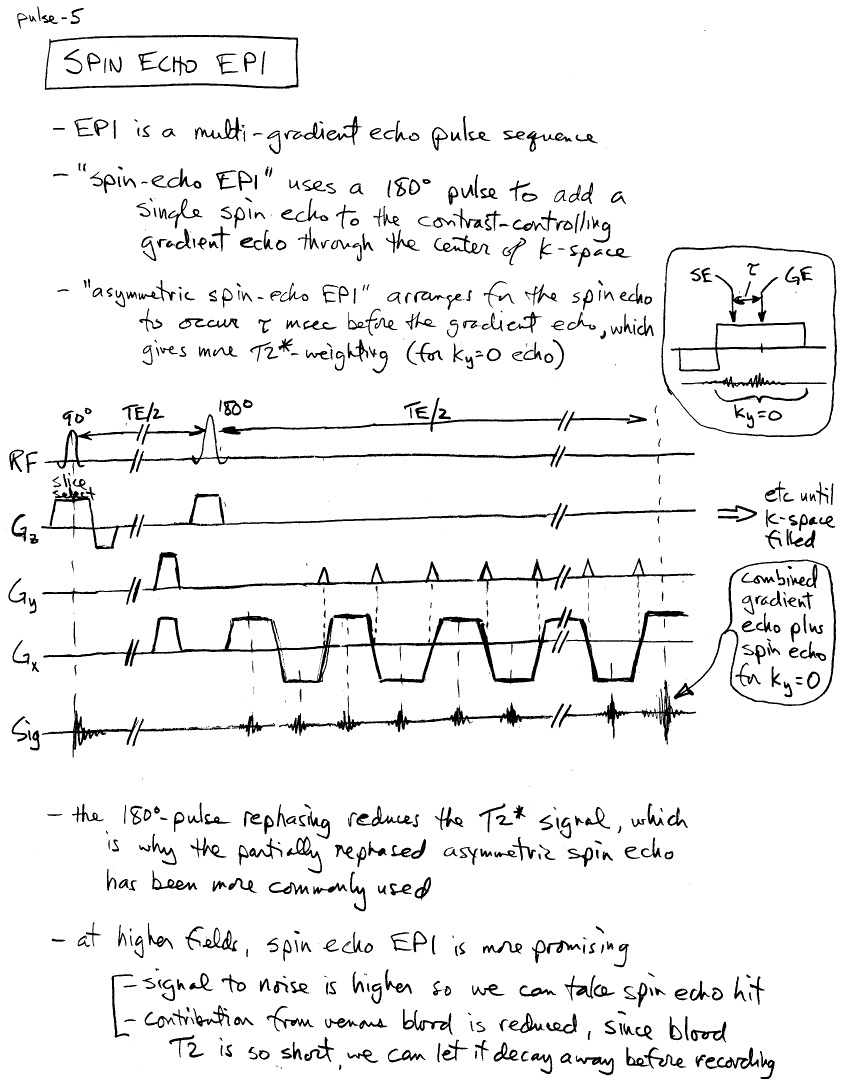 pulse-5
SPIN ECHO EPI
- EPI is a multi-gradient echo pulse sequence
- "spin-echo EPI" uses a 180° pulse to add a
single spin echo to the contrast-controlling
gradient echo through the center of k-space
- "asymmetric spin-echo EPI" arranges for the spin echo
to occur τ msec before the gradient echo, which
gives more T2*-weighting (for ky=0 echo)
SE τ GE
ky=0
90° TE/2 180° TE/2
RF
slice
select
Gz
⇒ etc until
k-space
filled
Gy
combined
gradient
echo plus
spin echo
for ky=0
Gx
Sig
- the 180°-pulse rephasing reduces the T2* signal, which
is why the partially rephased asymmetric spin echo
has been more commonly used
- at higher fields, spin echo EPI is more promising
- signal to noise is higher so we can take spin echo hit
- contribution from venous blood is reduced, since blood
T2 is so short, we can let it decay away before recording